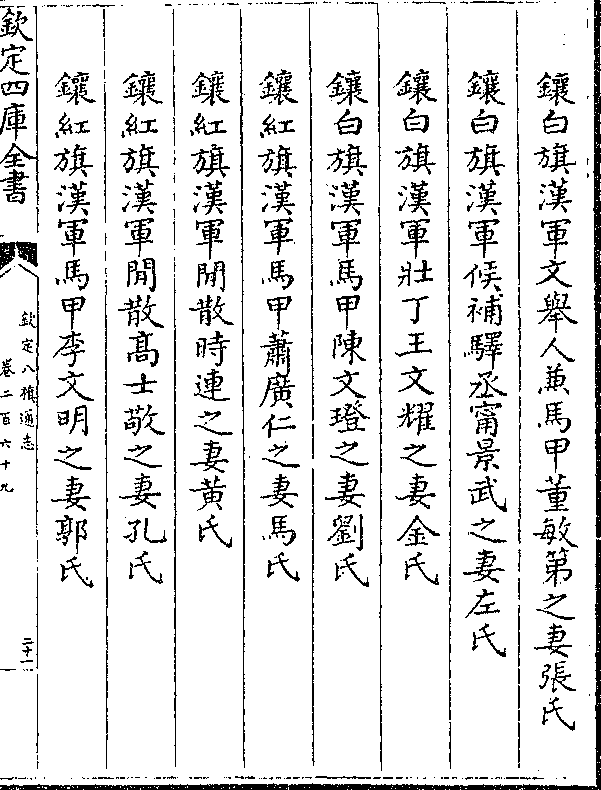 鑲白旗漢軍文舉人兼馬甲董敏第之妻張氏
鑲白旗漢軍候補驛丞甯景武之妻左氏
鑲白旗漢軍壯丁王文耀之妻金氏
鑲白旗漢軍馬甲陳文璒之妻劉氏
鑲紅旗漢軍馬甲蕭廣仁之妻馬氏
鑲紅旗漢軍閒散時連之妻黃氏
鑲紅旗漢軍閒散髙士敬之妻孔氏
鑲紅旗漢軍馬甲李文明之妻郭氏
欽定四庫全書
欽定八旗通志
卷二百六十九
二十一